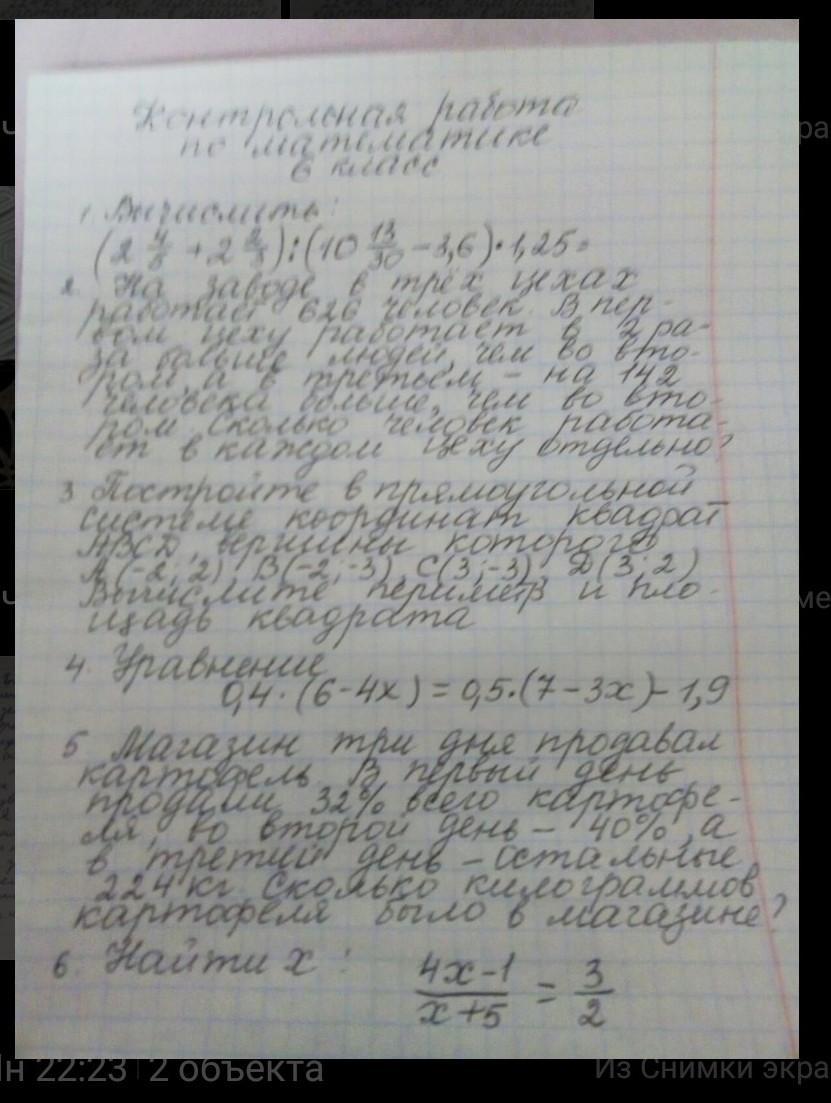 Контрольная работа
по математике
6 класс
1. Вычислить:
(2 4/5 + 2 2/3):(10 13/30 - 3,6)·1,25=
2. На заводе в трёх цехах
работает 626 человек. В пер-
вом цеху работает в 2 ра-
за больше людей, чем во вто-
ром, а в третьем - на 142
человека больше, чем во вто-
ром. Сколько человек работа-
ет в каждом цеху отдельно?
3 Постройте в прямоугольной
системе координат квадрат
ABCD, вершины которого
A(-2; 2) B(-2; -3), C(3; -3) D(3; 2)
Вычислите периметр и пло-
щадь квадрата
4. Уравнение
0,4·(6-4x)=0,5·(7-3x)-1,9
5 Магазин три дня продавал
картофель. В первый день
продали 32% всего картофе-
ля, во второй день - 40%, а
в третий день - остальные
224 кг. Сколько килограммов
картофеля было в магазине?
6. Найти x: (4x-1)/(x+5) = 3/2
22:23 2 объекта
Из Снимки экра